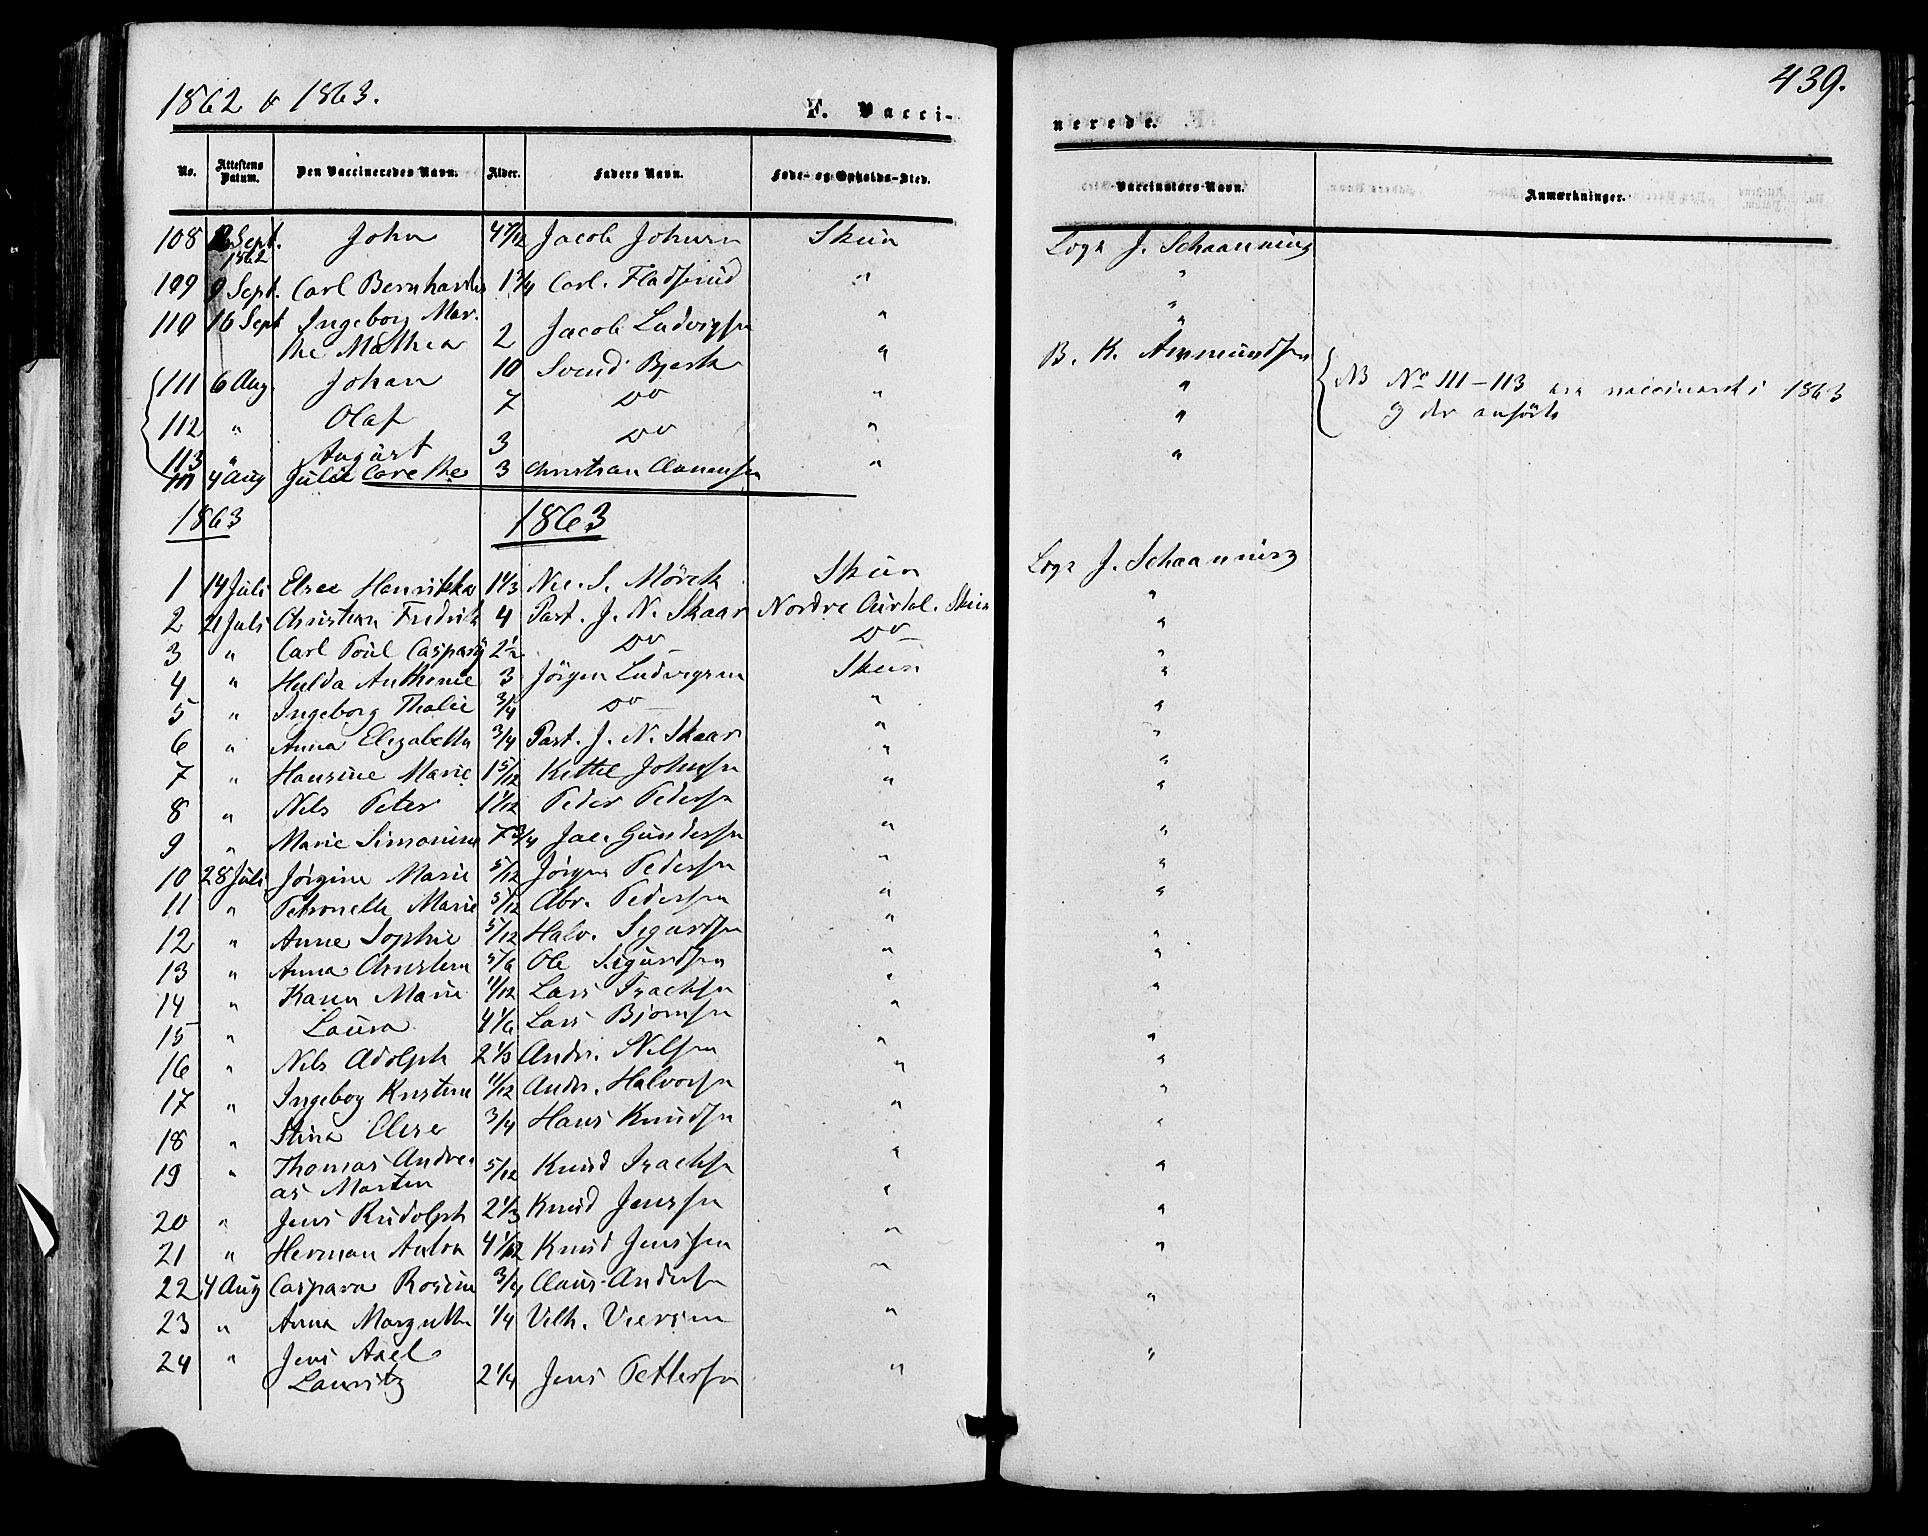 1862 & 1863.
F. Vacci-
nerede.
439.
No. Attestens Datum. Den Vaccineredes Navn. Alder. Faders Navn. Føde- og Opholds-Sted. Vaccinators Navn. Anmærkninger.
108 2 Sept. 1862 John 4 7/12 Jacob Johnsen Skien Lœge J. Schaanning
109 9 Sept. Carl Bernhardus 1 3/4 Carl. Fladsrud " "
110 16 Sept Ingeborg Mar-
the Mathea 2 Jacob Ludvigsen " "
111 6 Aug. Johan 10 Svend Bjerk " B. K. Anmundsen { NB No 111-113 ere vaccineret i 1863
112 " Olaf 7 Do " " og der anførte
113 " August 3 Do " "
111 4 Aug Julie Carethe 3 Christian Clausensen " "
1863 1863
1 14 Juli Elise Henrikka 1 1/3 Nie. S. Mörck Skien Lœge J. Schaanning
2 21 Juli Christian Fredrik 4 Past. J. N. Skaar Nordre Aurdal. Skien "
3 " Carl Poul Caspary 2 1/2 Do Do "
4 " Hulda Anthonie 3 Jörgen Ludvigsen Skien "
5 " Ingeborg Thalie 3/4 Do " "
6 " Anna Elisabetha 3/4 Past. J. N. Skaar " "
7 " Hansine Marie 1 5/12 Kittel Johnsen " "
8 " Nils Peter 1 1/12 Peder Pedersen " "
9 " Marie Simonine 7 3/4 Jac. Gundersen " "
10 28 Juli Jörgine Marie 5/12 Jörgen Pedersen " "
11 " Petronelle Marie 5/12 Abr. Pedersen " "
12 " Anne Sophie 5/12 Halv. Sigurdsen " "
13 " Anna Christine 5/6 Ole Sigurdsen " "
14 " Karen Marie 11/12 Lars Isachsen " "
15 " Laura 4 1/6 Lars Bjornsen " "
16 " Nils Adolph 2 1/3 Andr. Nilsen " "
17 " Ingeborg Kristine 11/12 Andr. Halvorsen " "
18 " Stina Elise 3/4 Hans Knudsen " "
19 " Thomas Andre-
as Martin 5/12 Knud Isachsen " "
20 " Jens Rudolph 2 1/3 Knud Jenssen " "
21 " Herman Anton 4 1/12 Knud Jenssen " "
22 4 Aug Caspara Rosine 3/4 Claus Andersen " "
23 " Anna Margrethe 1/4 Vilh. Viersen " "
24 " Jens Axel
Lauritz 2 1/4 Jens Pettersen " "